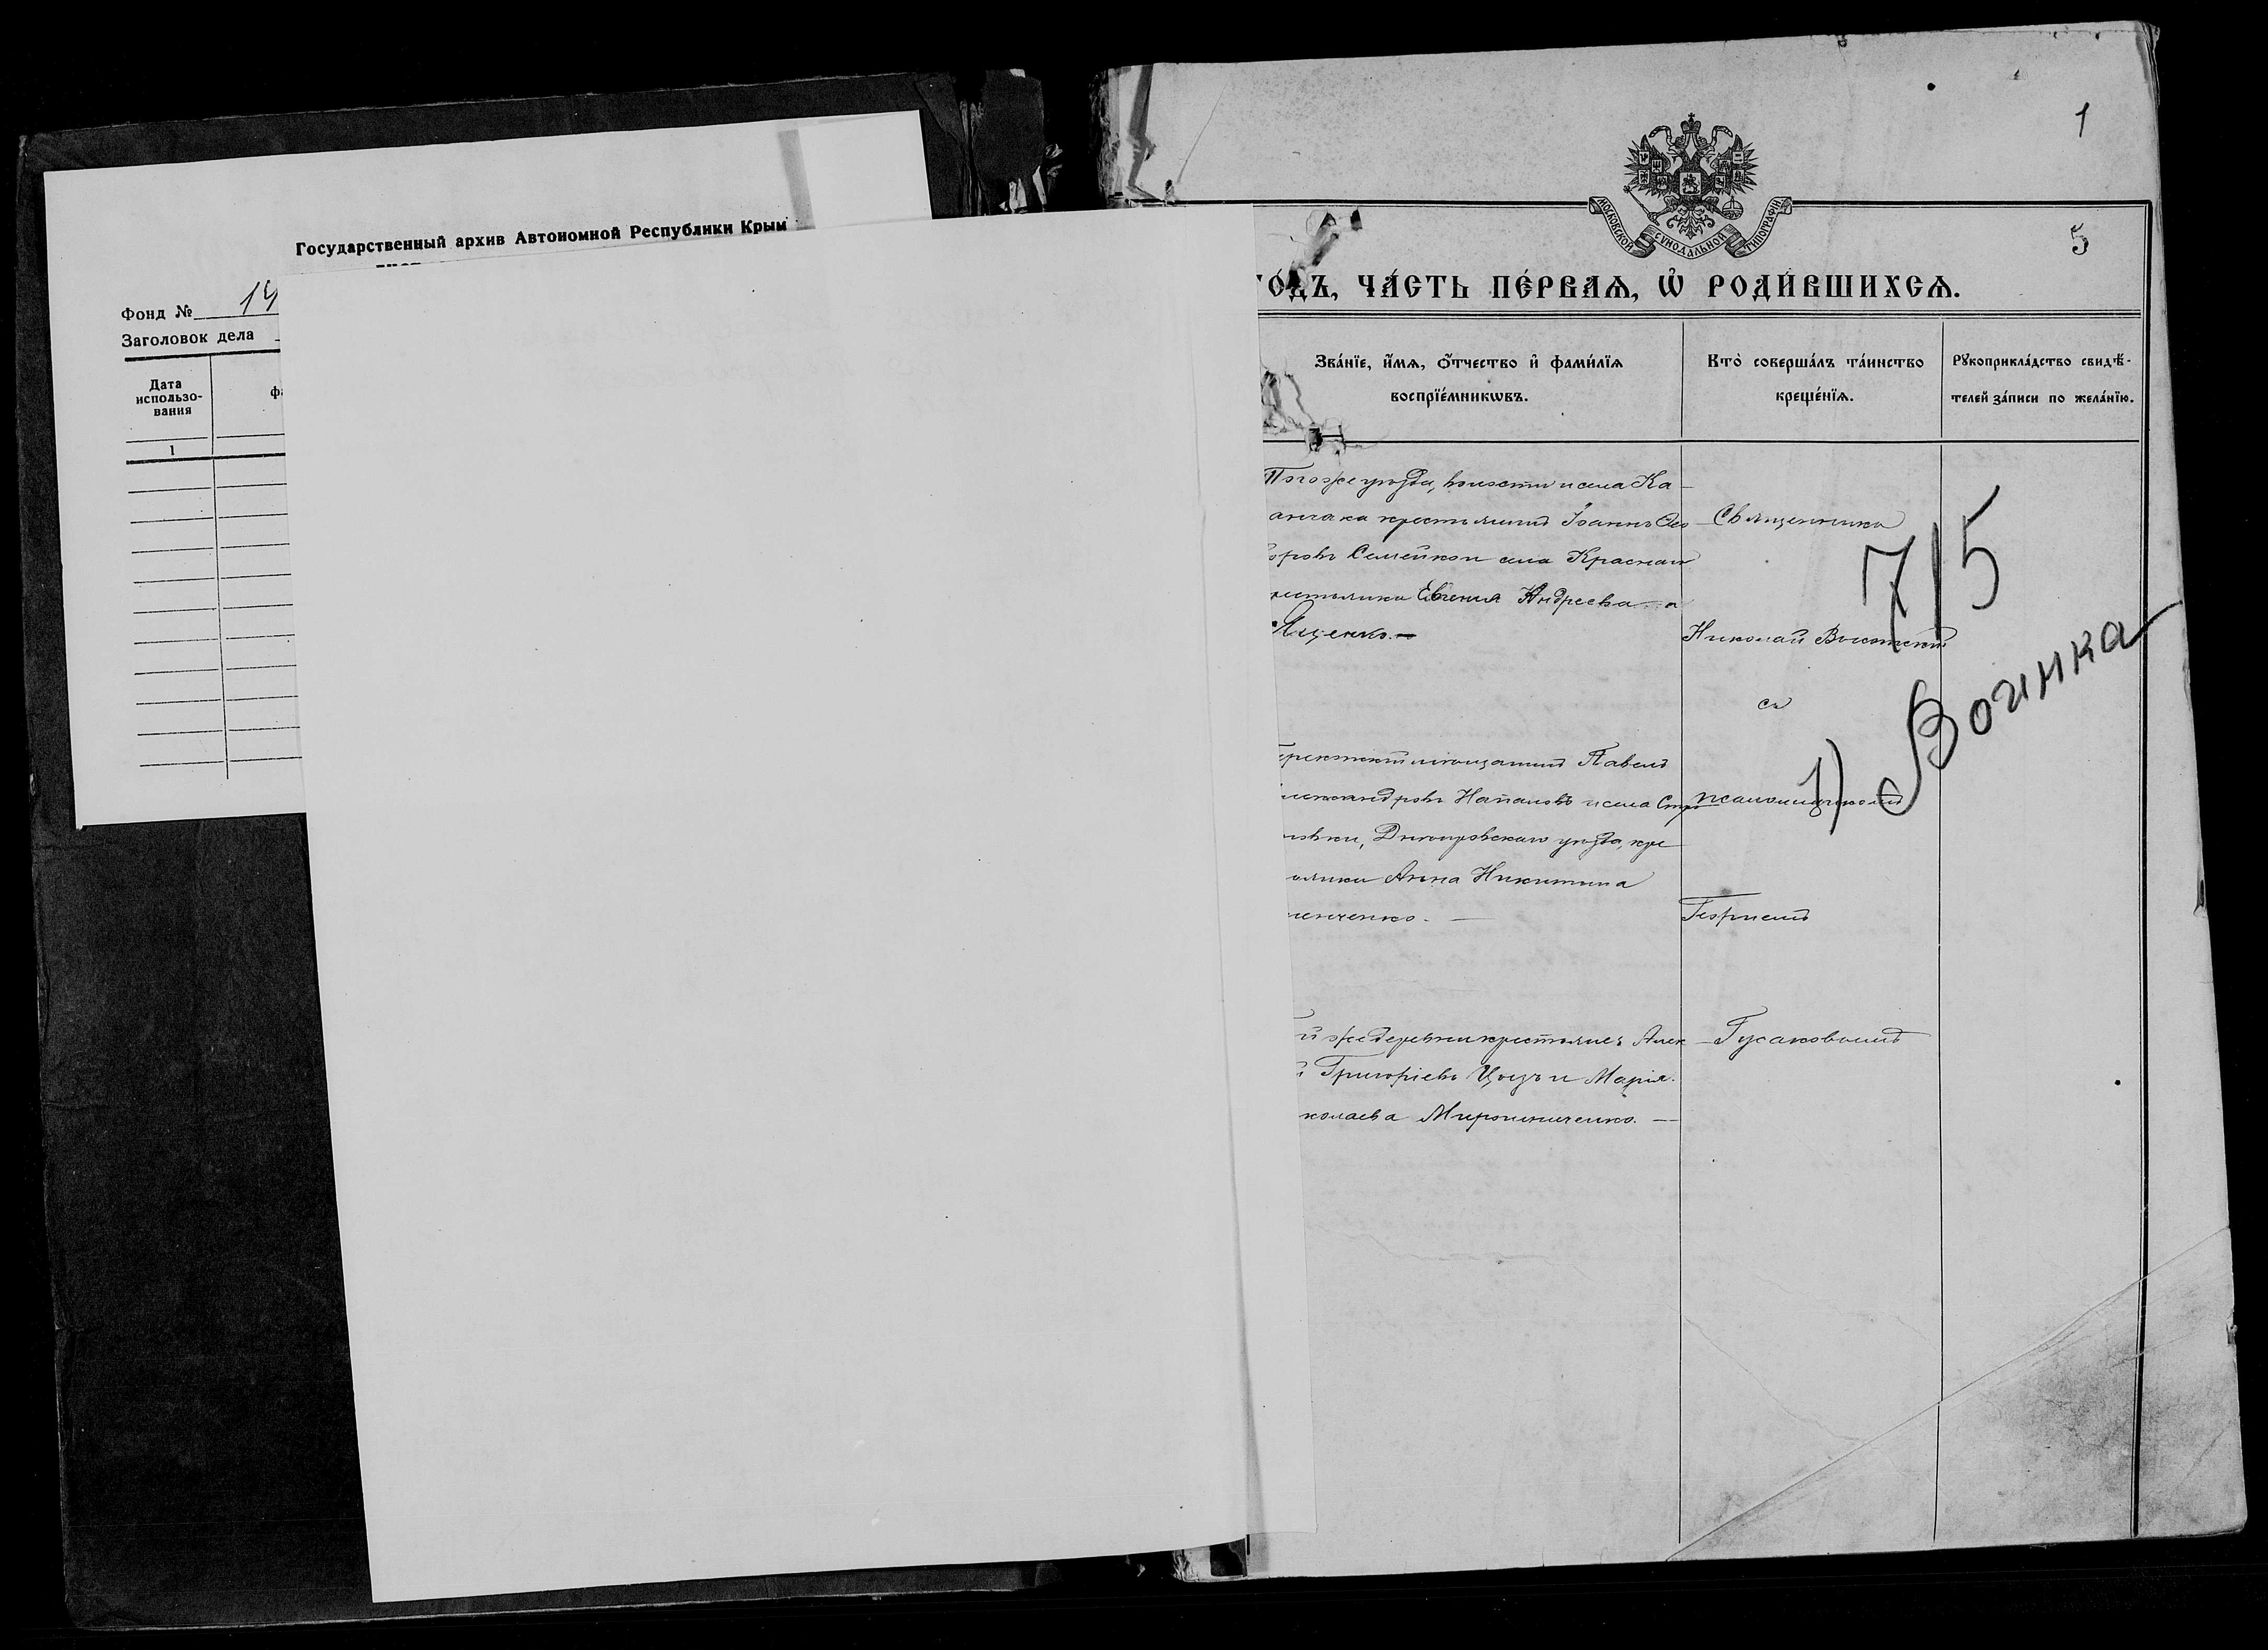 Государственный архив Автономной Республики Крым
Фонд № 14
Заголовок дела
Дата
использо-
вания
1
1
5
МОСКОВСКОЙ СѴНОДАЛЬНОЙ ТИПОГРАФІИ
ГО́ДЪ, ЧА́СТЬ ПЕ́РВАѦ, Ѡ҆ РОДИ́ВШИХСѦ.
Зва́нїе, и҆́мѧ, ѻ҆́тчество и҆ фами́лїѧ
воспрїе́мникѡвъ.
Кто̀ соверша́лъ та́инство
креще́нїѧ.
Рꙋкоприкла́дство свидѣ́-
телей за́писи по жела́нїю.
Тогоже уѣзда, волости и села Ка-
анчака крестьянинъ Іоаннъ Ѳео
доровъ Семейкон села Краснаго
рестьянка Евгенія Андреева
Ященко. —
Священникъ
Николай Высотскій
съ
псаломщикомъ
Георгіемъ
Гусаковымъ
715
1) Воинка
Перекопскій мѣщанинъ Павелъ
лександровъ Напаловъ и села Стро
Днѣпровскаго уѣзда, кре
Анна Никитина
енченко. —
й же деревни крестьяне: Алек
й Григоріевъ Цыгъ и Марія
колаева Мирошниченко. —